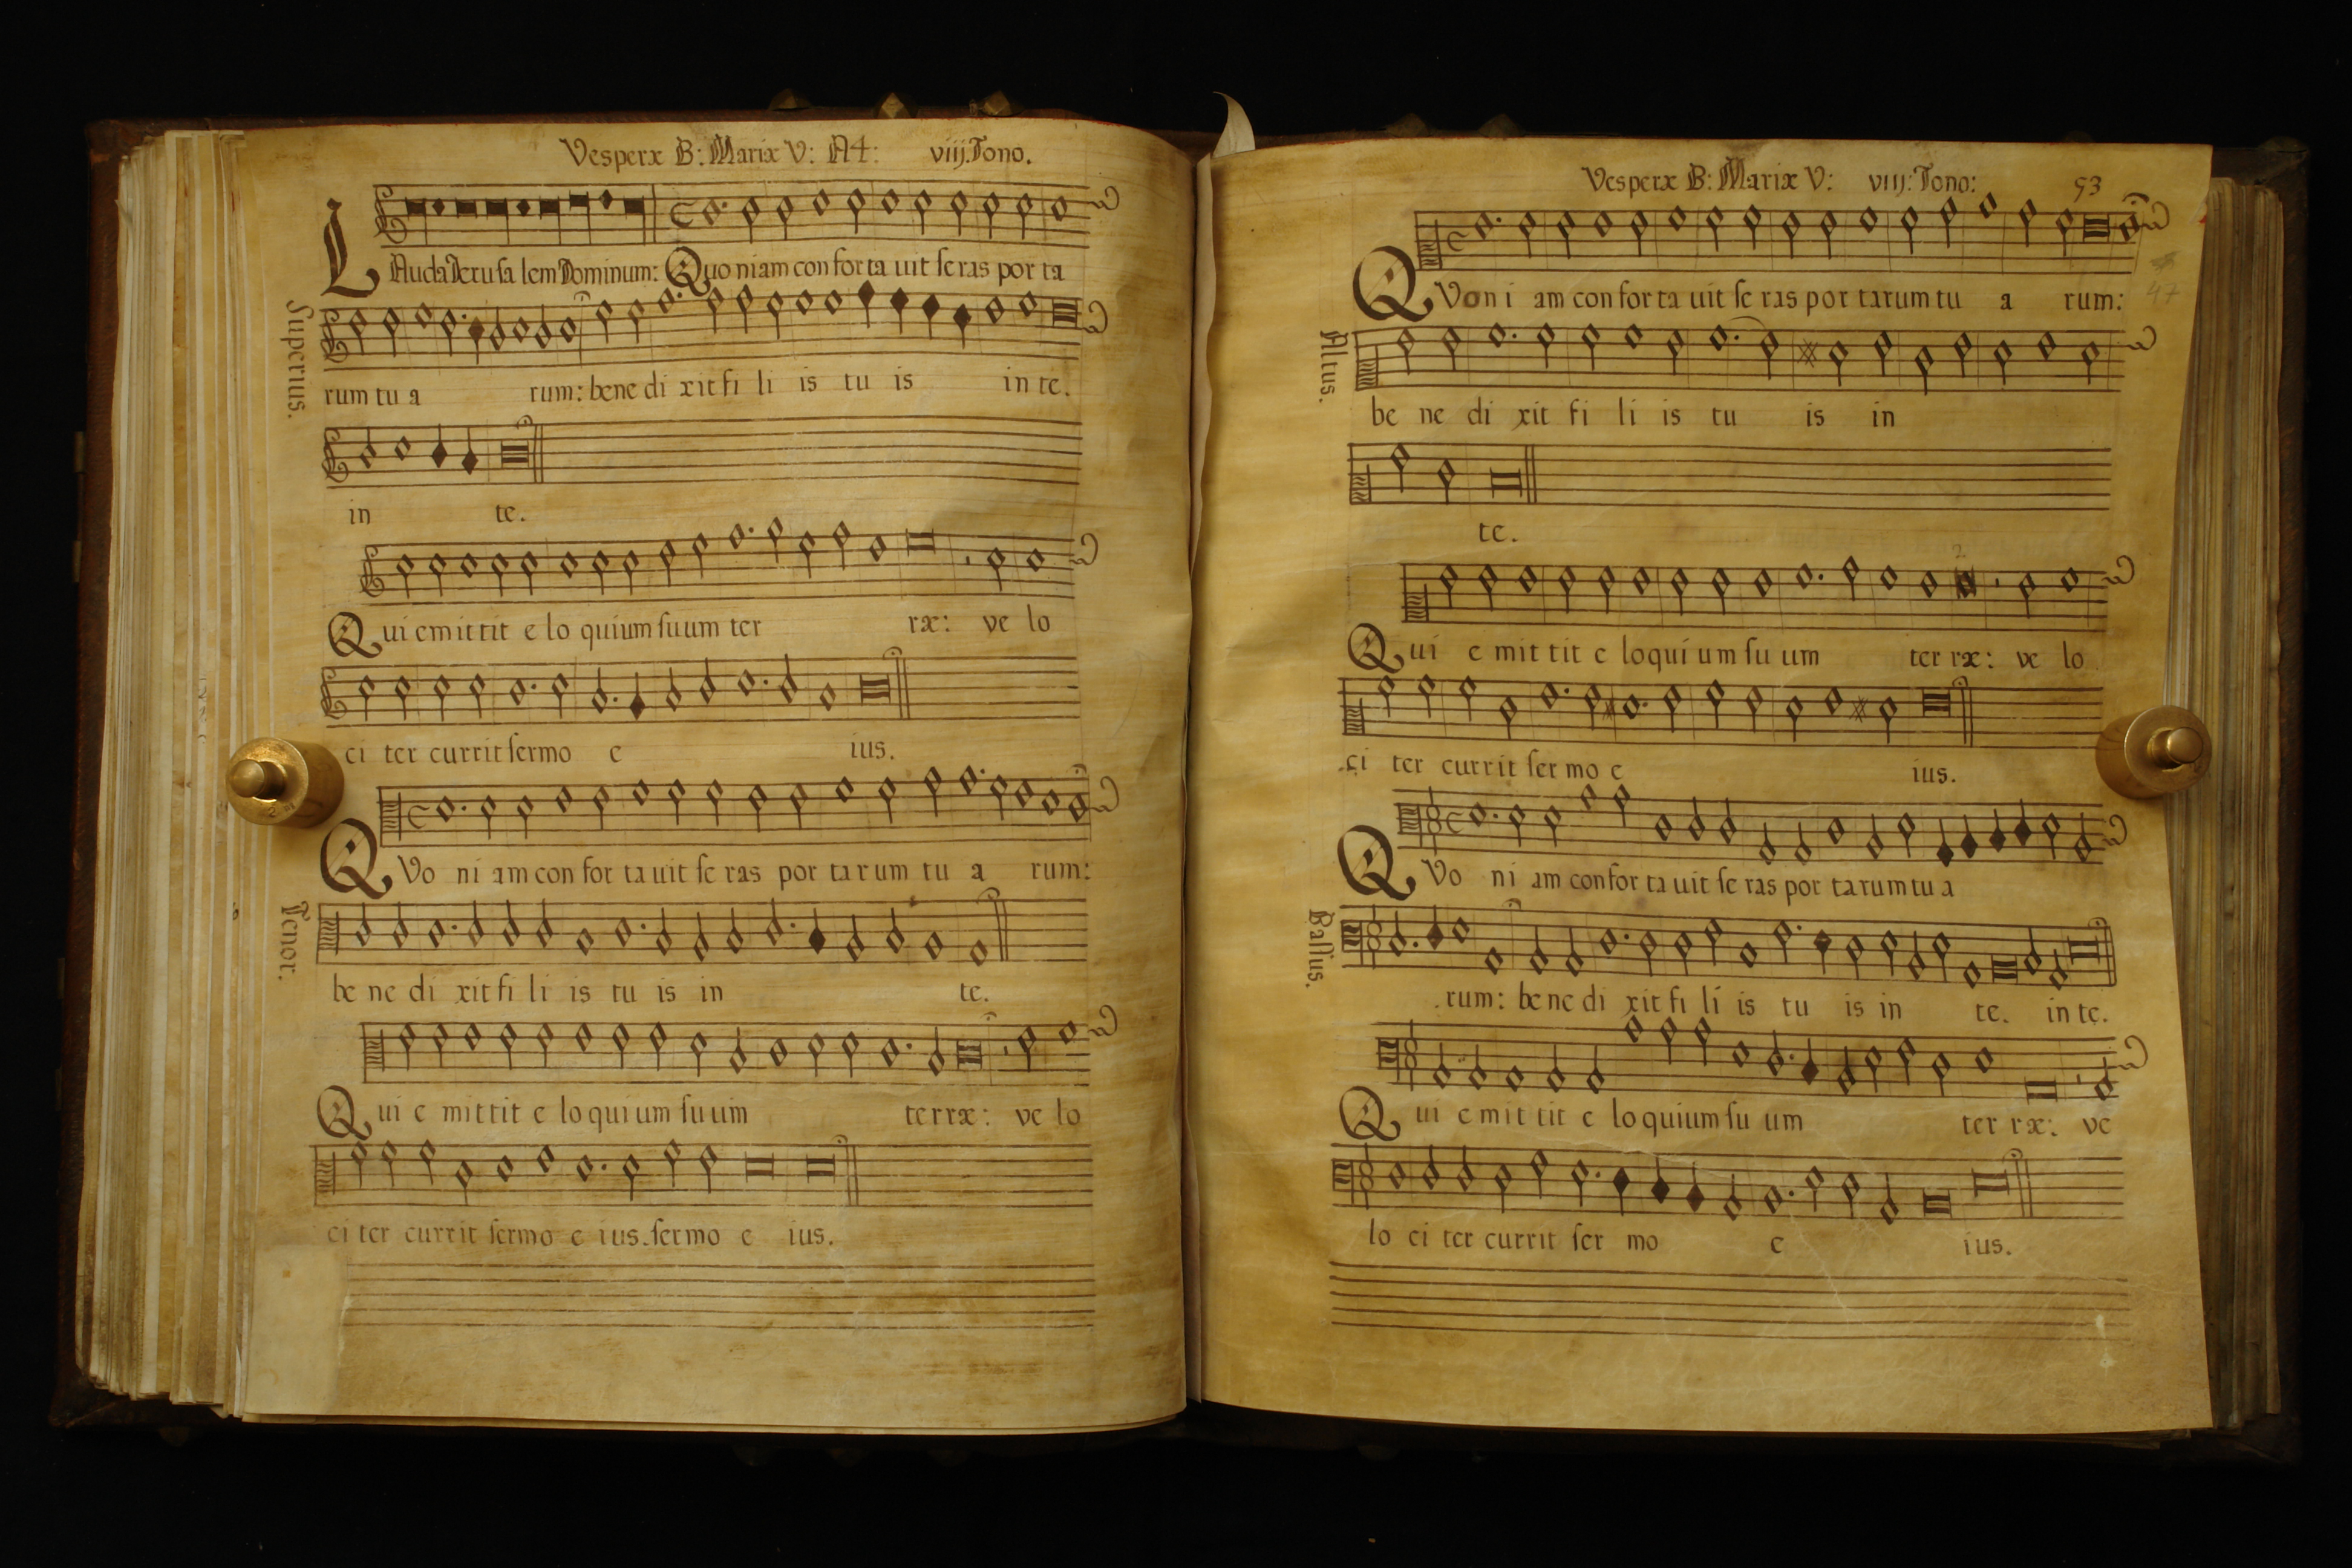 Vesperæ B: Mariæ V: A4: viij. Tono.
LAuda Jeru ſa lem Dominum: Quo niam con for ta uit ſe ras por ta
Superius.
rum tu a rum: bene di xit fi li is tu is in te.
in te.
Qui emittit e lo quium ſuum ter ræ: ve lo
ci ter currit ſermo e ius.
QVo ni am con for ta uit ſe ras por ta rum tu a rum:
Tenor.
be ne di xit fi li is tu is in te.
Qui e mit tit e lo qui um ſu um ter ræ: ve lo
ci ter currit ſermo e ius. ſer mo e ius.
Vesperæ B: Mariæ V: viij: Tono: 53
47
QVon i am con for ta uit ſe ras por ta rum tu a rum:
Altus.
be ne di xit fi li is tu is in
te.
Qui e mit tit e lo qui um ſu um ter ræ: ve lo
ci ter currit ſer mo e ius.
QVo ni am con for ta uit ſe ras por ta rum tu a
Baſſus.
rum: be ne di xit fi li is tu is in te. in te.
Qui e mit tit e lo quium ſu um ter ræ: ve
lo ci ter currit ſer mo e ius.